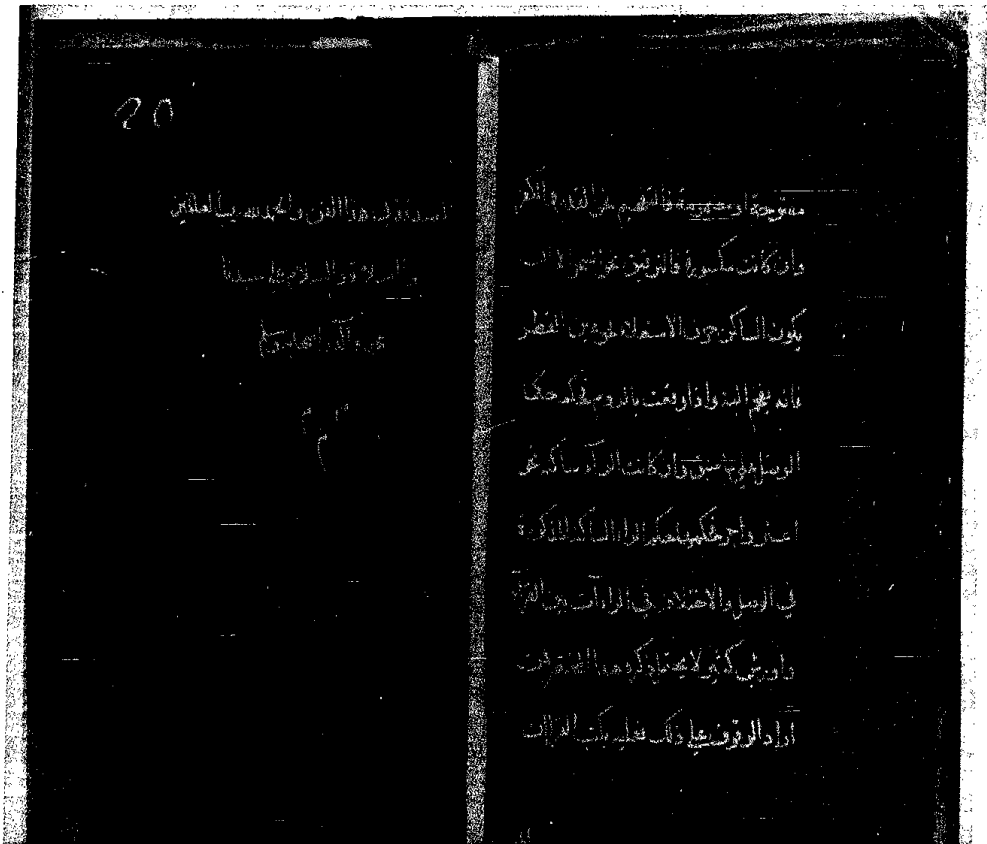 مفتوحة او مضمومة فالتفخيم نحو القدر والأمر
وان كانت مكسورة فالترقيق نحو الا ان
يكون الساكن حرف الاستعلاء نحو عين القطر
فانه يفخم البتة واذا وقعت بالروم فحكمه حكم
الوصل على ما سبق وان كانت الراء ساكنة نحو
واجر فحكمها حكم الراء الساكنة المذكورة
في الوصل والاختلاف في الراءآت بين القراء
كثير لا يحتمل ذكره هذا المختصر
اراد الوقوف على ذلك فعليه بكتب القراءات
في هذا الفن والحمد لله رب العالمين
والصلاة والسلام على سيدنا
محمد وآله
م م م
20